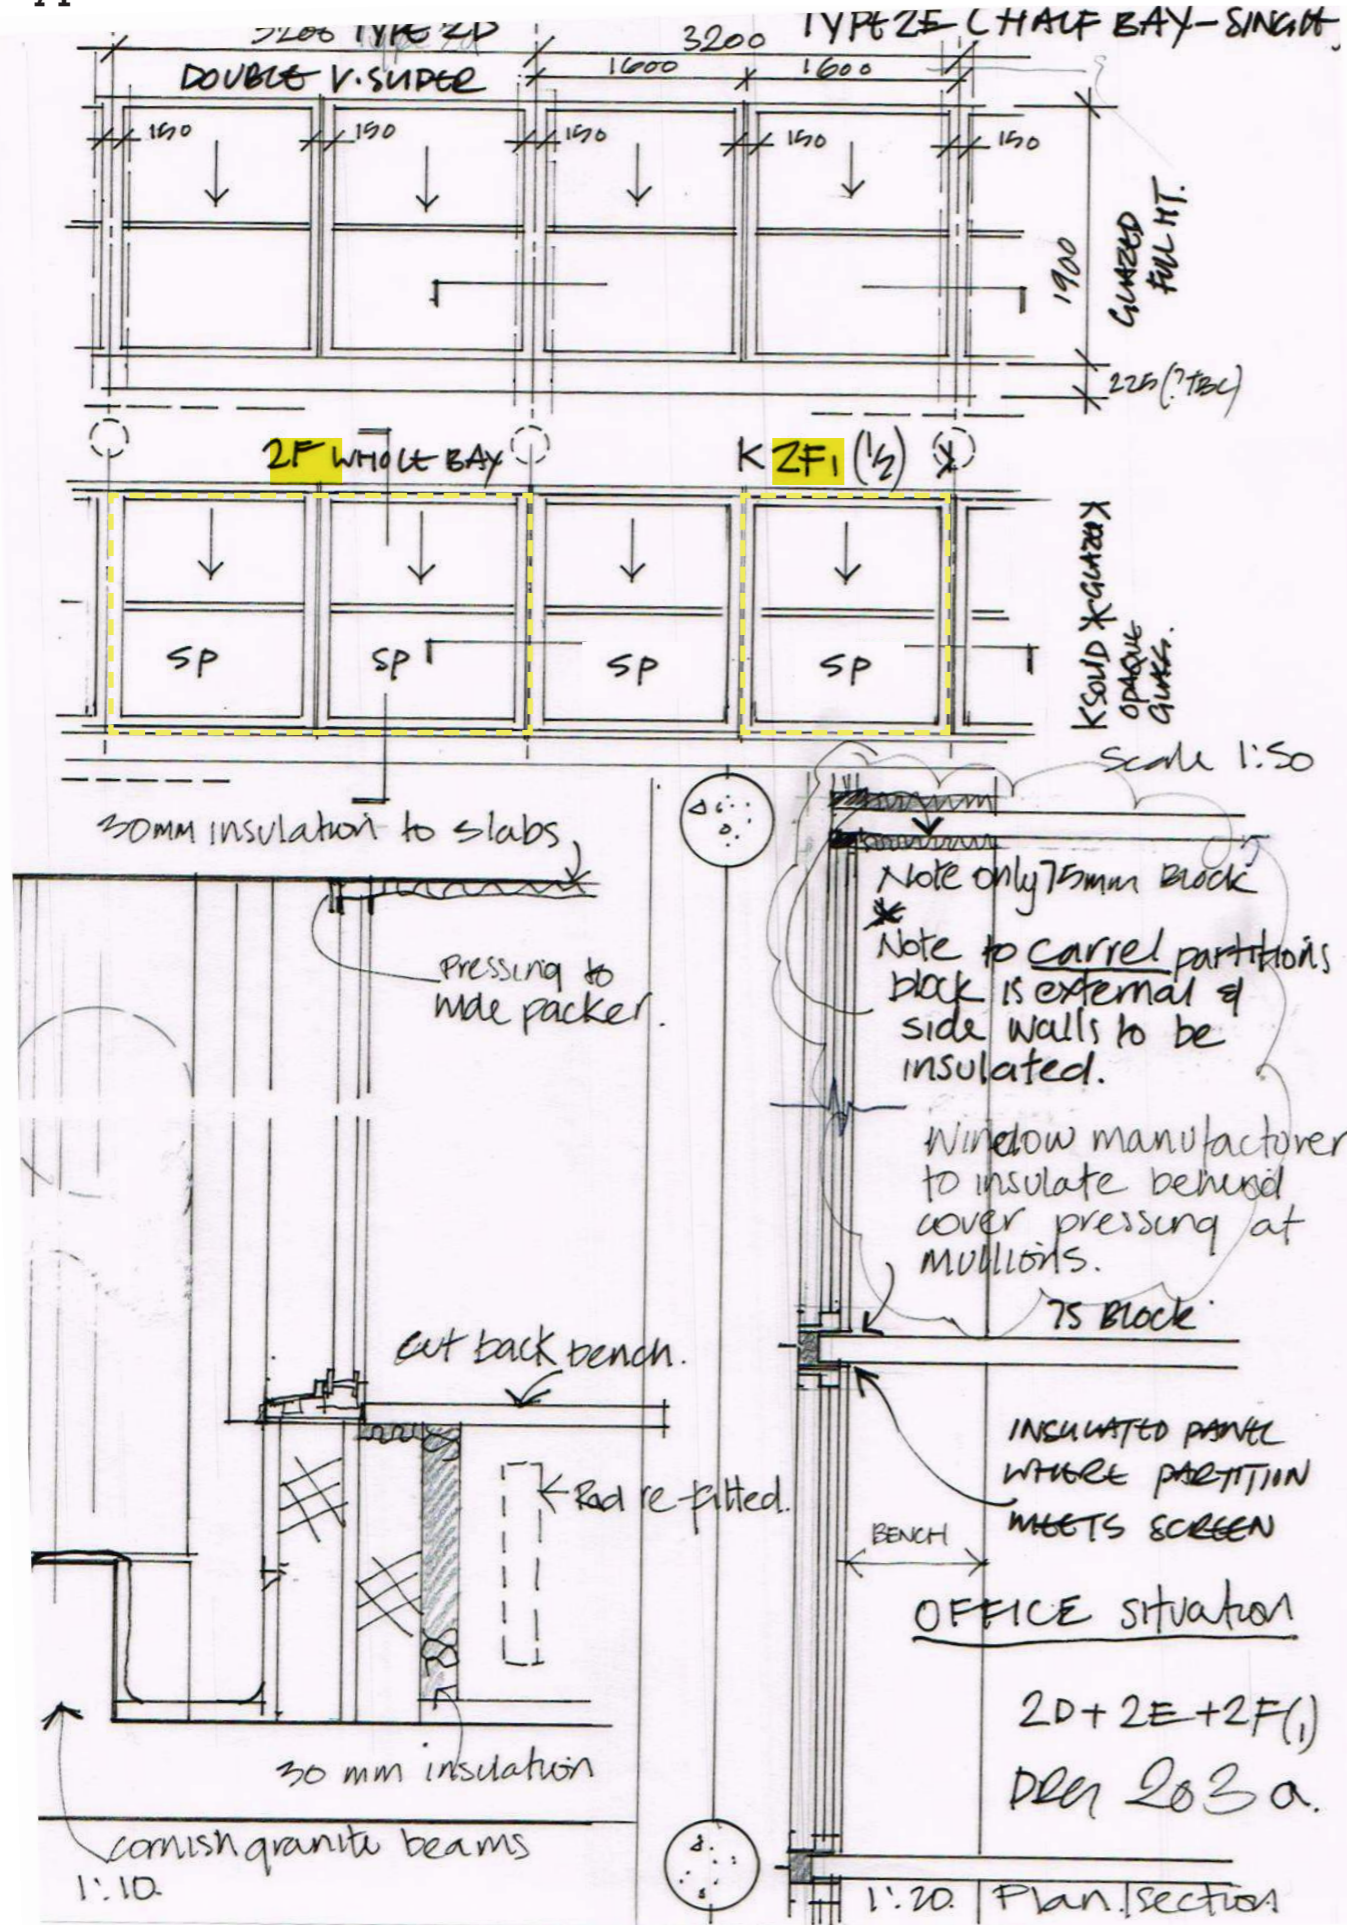 3200 TYPE 2D
3200
TYPE 2E (HALF BAY-SINGLE
DOUBLE V.SLIDER
1600
1600
150
150
150
150
150
1900
GLAZED
FULL HT.
225 (?TBC)
2F WHOLE BAY
K 2F1 (1/2)
SP
SP
SP
SP
SOLID
GLAZED
OPAQUE
GLASS.
Scale 1:50
30mm insulation to slabs
Note only 75mm Block
Note to carrel partitions
block is external &
side walls to be
insulated.
Pressing to
hide packer.
Window manufacturer
to insulate behind
cover pressing at
mullions.
75 Block
cut back bench.
INSULATED PANEL
WHERE PARTITION
MEETS SCREEN
Rad re-fitted.
BENCH
OFFICE situation
2D + 2E + 2F(1)
DRG 203 a.
30 mm insulation
cornish granite beams
1:10.
1:20. Plan/section